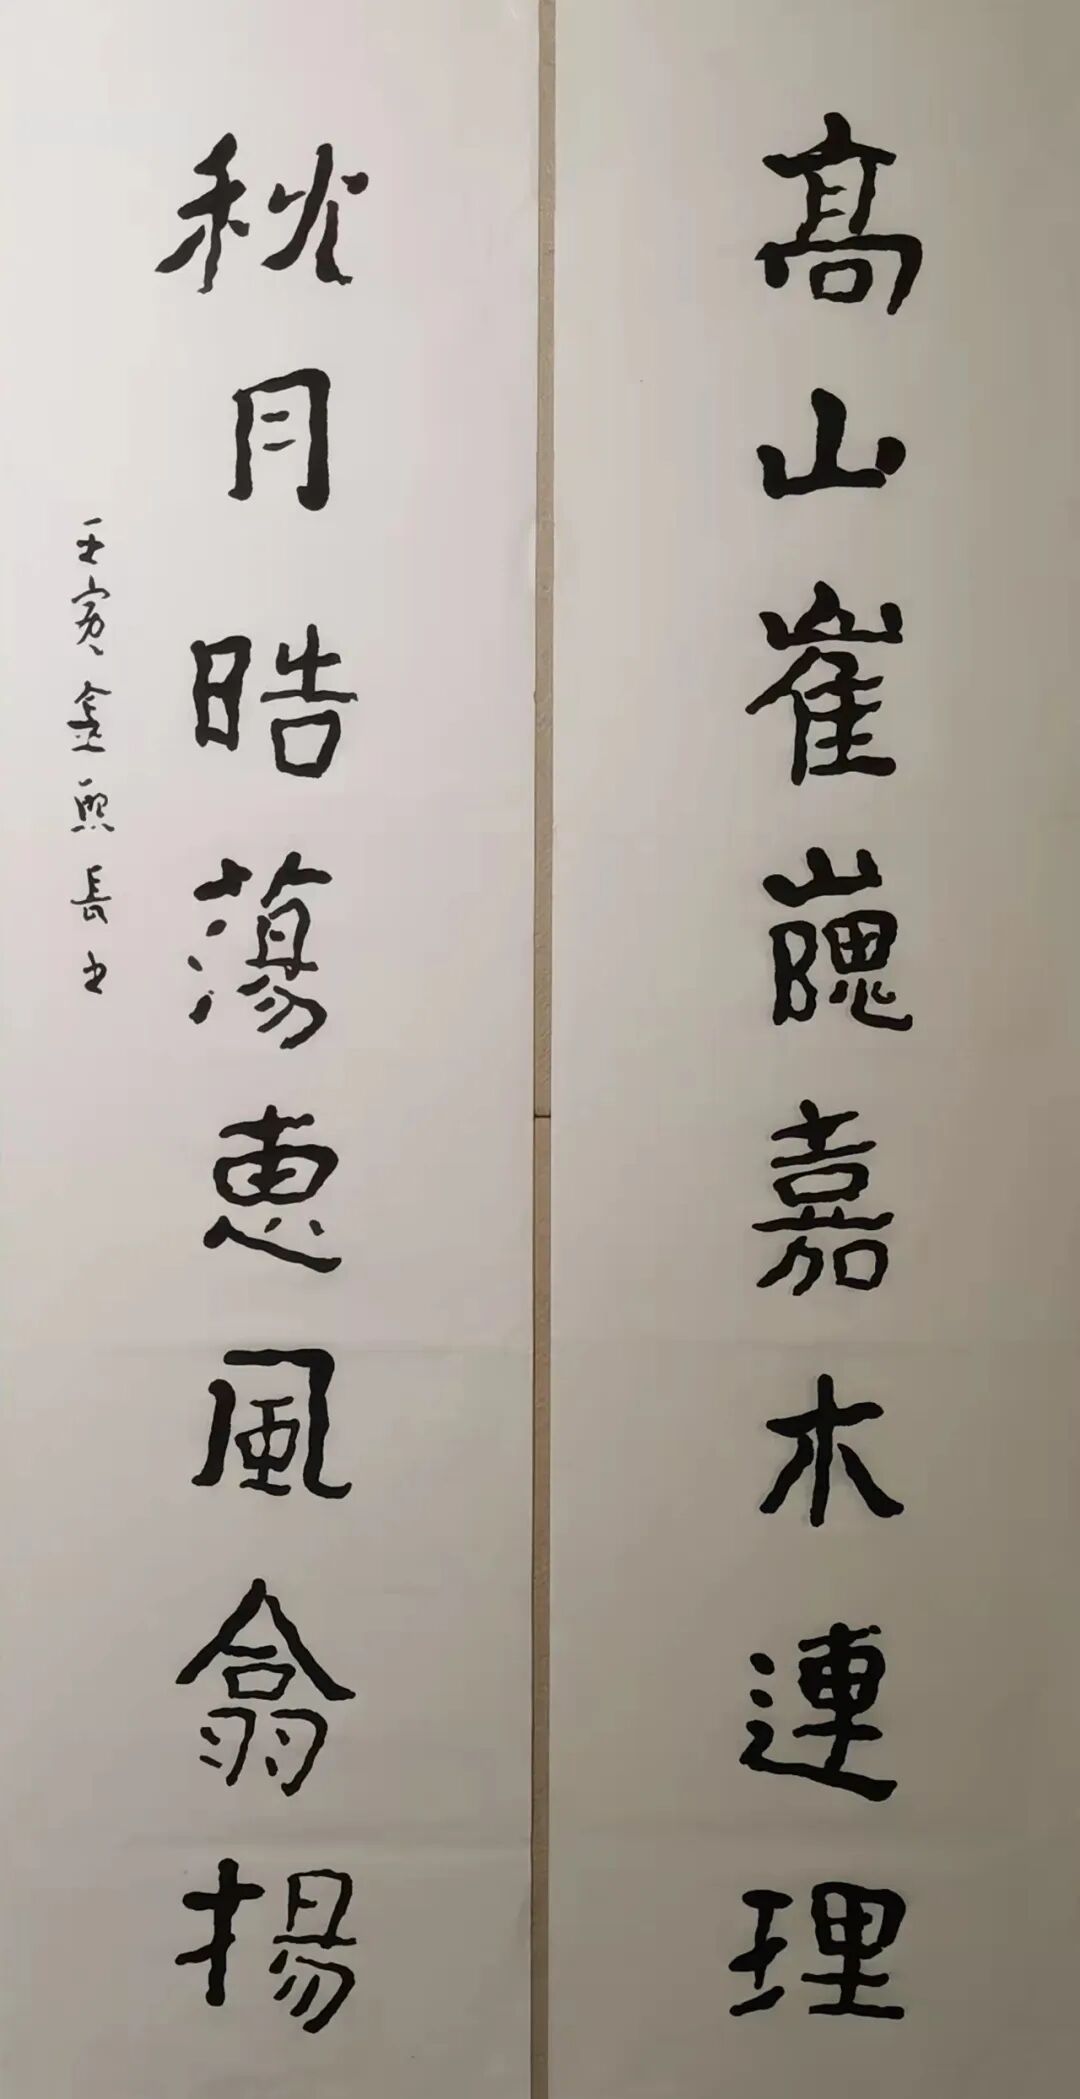 高山崔巍嘉木連理
秋月晧蕩惠風翕揚
壬寅金熙長书